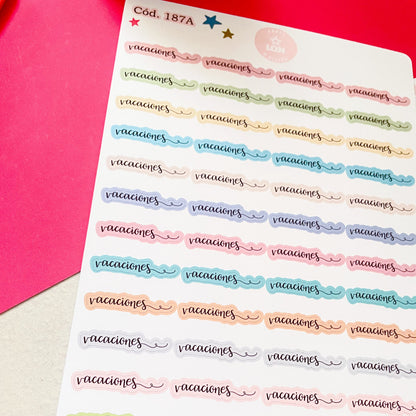 Cód. 187A
vacaciones vacaciones vacaciones vacaciones
vacaciones vacaciones vacaciones vacaciones
vacaciones vacaciones vacaciones vacaciones
vacaciones vacaciones vacaciones vacaciones
vacaciones vacaciones vacaciones vacaciones
vacaciones vacaciones vacaciones vacaciones
vacaciones vacaciones vacaciones vacaciones
vacaciones vacaciones vacaciones vacaciones
vacaciones vacaciones vacaciones vacaciones
vacaciones vacaciones vacaciones vacaciones
vacaciones vacaciones vacaciones vacaciones